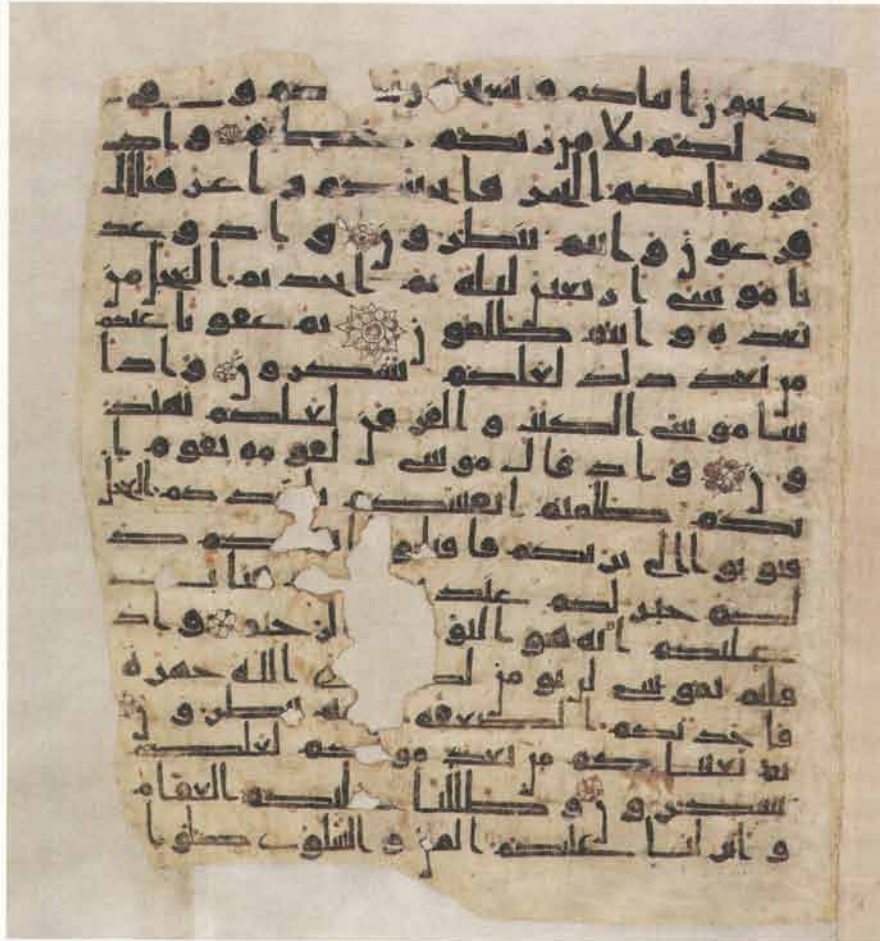 يذبحون ابناكم و يستحيون نساكم و في
ذلكم بلا من ربكم عظيم و اذ
فرقنا بكم البحر فانجينكم و اغرقنا ال
فرعون و انتم تنظرون و اذ وعد
نا موسى اربعين ليلة ثم اتخذتم العجل من
بعده و انتم ظلمون ثم عفونا عنكم
من بعد ذلك لعلكم تشكرون و اذ ا
تينا موسى الكتب و الفرقن لعلكم تهتد
ون و اذ قال موسى لقومه يقوم ا
نكم ظلمتم انفسكم باتخاذكم العجل
فتوبوا الى بارئكم فاقتلوا انفسكم ذ
لكم خير لكم عند فتاب
عليكم انه هو التو الرحيم و اذ
قلتم يموسى لن نومن لك الله جهرة
فاخذتكم الصعقة نتم تنظرون
ثم بعثناكم من بعد موتكم لعلكم
تشكرون و ظللنا عليكم الغمام
و انزلنا عليكم المن و السلوى كلوا